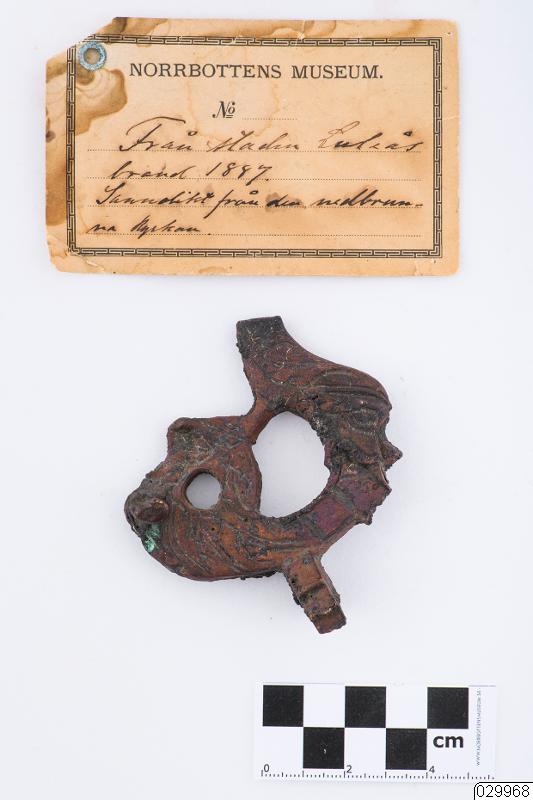 NORRBOTTENS MUSEUM.
№
Från staden Luleås
brand 1887.
Sannolikt från den nedbrun-
na Kyrkan
cm
0 2 4
WWW.NORRBOTTENSMUSEUM.SE
029968